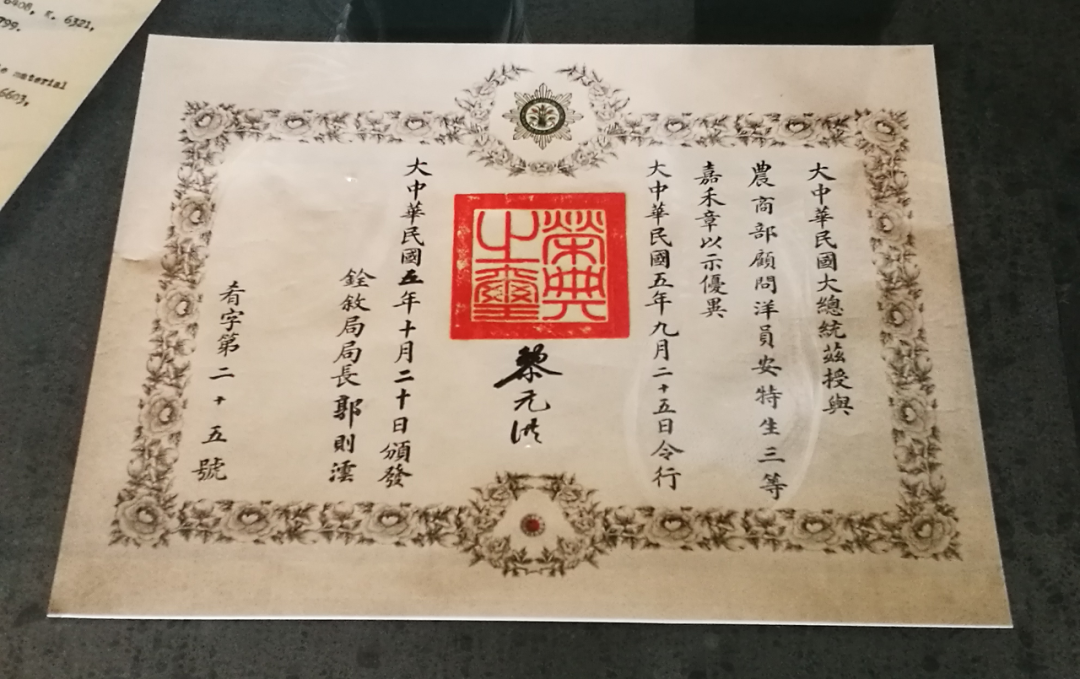 6408, K. 6321,
799.
material
6603,
大中華民國大總統茲授與
農商部顧問洋員安特生三等
嘉禾章以示優異
大中華民國五年九月二十五日令行
榮典之璽
黎元洪
大中華民國五年十月二十日頒發
銓敘局局長郭則澐
肴字第二十五號